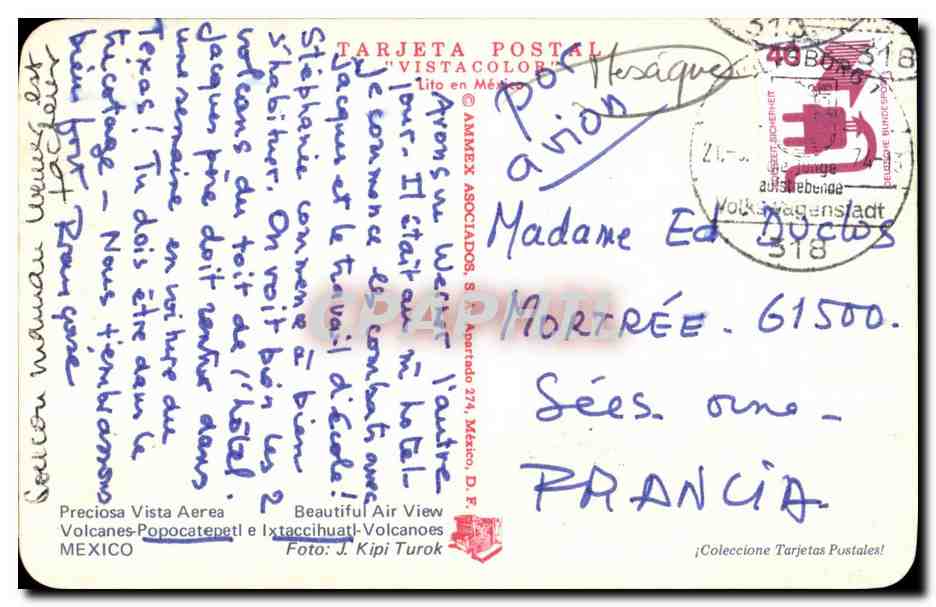 TARJETA POSTAL
"VISTACOLOR"
Lito en México
© AMMEX ASOCIADOS, S. A. Apartado 274, México, D. F.
Avons vu Werner l'autre
jour. Il était au m̄ hotel.
Je commence les combats avec
Jacques et le travail d'école!
Stéphanie commence à bien
s'habituer. On voit bien les 2
volcans du toit de l'hôtel.
Jacques père doit rentrer dans
une semaine en voiture du
Texas! Tu dois être dans le
tricotage - Nous t'embrassons
bien fort
coucou maman
Por
avion
Madame Ed Duclos
MORTRÉE. 61500.
Sées. orne-
FRANCIA.
40
UNFALLZEIT-SICHERHEIT
DEUTSCHE BUNDESPOST
318
318
aufstrebende
Volkswagenstadt
318
Preciosa Vista Aerea
Beautiful Air View
Volcanes-Popocatepetl e Ixtaccihuatl-Volcanoes
MEXICO
Foto: J. Kipi Turok
¡Coleccione Tarjetas Postales!
CPAPHIL